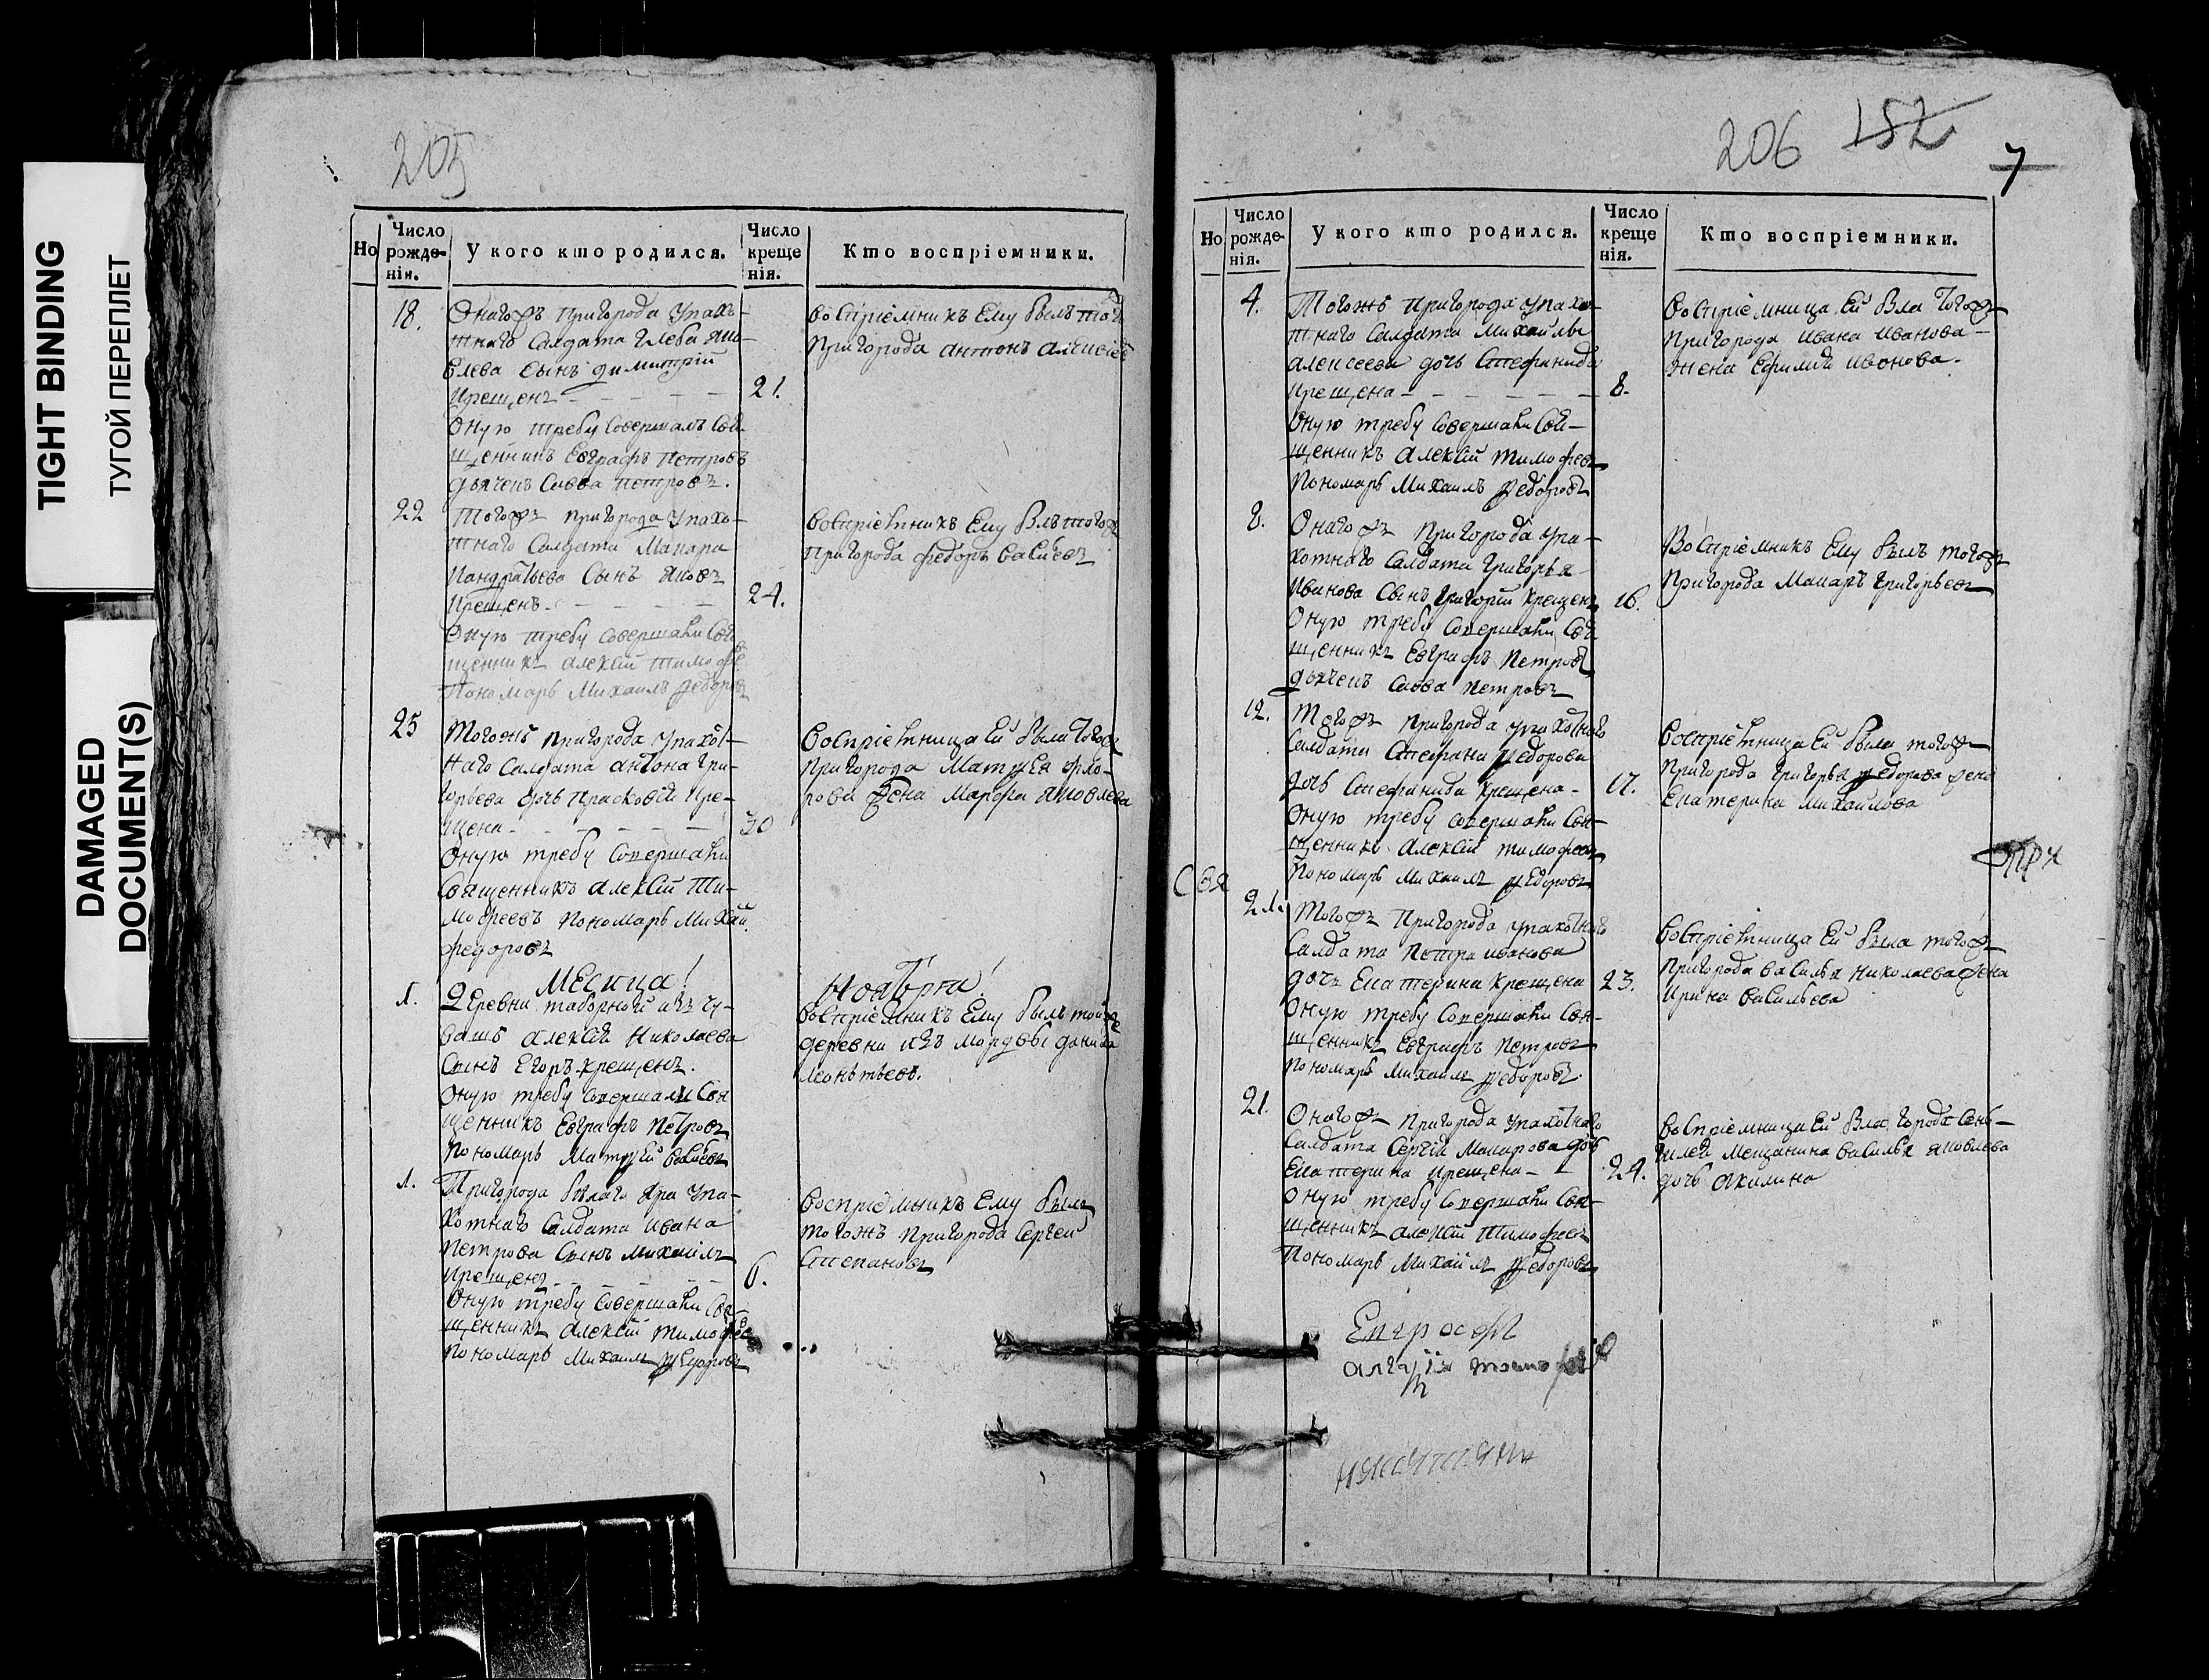 TIGHT BINDING
ТУГОЙ ПЕРЕПЛЕТ
DAMAGED
DOCUMENT(S)
205
Но
Число рожде-нія.
У кого кто родился.
Число креще нія.
Кто воспріемники.
18.
Онагожъ пригорода упахо-
тнаго Салдата Глеба Яко-
влева Сынъ димитрій
крещенъ
21.
Оную требу Совершалъ Свя
щенникъ Евграфъ Петровъ
дьячекъ Савва Петровъ.
воспріемникъ Ему былъ тогож
Пригорода антонъ
22
Тогожъ пригорода упахо-
тнаго Салдата Макара
Кандратьева Сынъ Яковъ
Крещенъ
24.
Оную требу Совершали Свя
щенникъ алексій тимофе
Пономарь Михаилъ федоровъ
воспріемникъ Ему былъ тогож
пригорода федоръ васильевъ
25
Тогожъ пригорода упахот-
наго Салдата антона Гри-
горьева дочь Прасковія Кре-
щена
30
Оную требу Совершали
Священникъ алексій Ти-
мофеевъ пономарь Михаи
федоровъ
воспріемница Ей была тогож
пригорода Матфея фло-
рова жена Марфа Яковлева
Месяца!
Ноября!
1.
Деревни таборной изъ чу-
вашъ алексія Николаева
Сынъ Егоръ крещенъ.
Оную требу Совершали Свя
щенникъ Евграфъ Петровъ
пономарь Матфей васильевъ
воспріемникъ Ему былъ тойже
деревни изъ мордвы данила
Леонтьевъ.
1.
Пригорода белаго Яра упа-
хотнаго Салдата ивана
Петрова Сынъ михаилъ
Крещенъ
6.
Оную требу Совершали Свя-
щенникъ алексій тимофеев
пономарь михаилъ федоровъ
воспріемникъ Ему былъ
тогожъ пригорода Сергей
Степановъ
206 152
7
Но
Число рожде-нія.
У кого кто родился.
Число креще нія.
Кто воспріемники.
4.
Тогожъ пригорода упахо-
тнаго Салдата Михаилы
алексеева дочь Стефанида
крещена
8.
Оную требу Совершали Свя-
щенникъ алексій тимофеевъ
Пономарь Михаилъ федоровъ
воспріемница Ей Бла тогож
пригорода ивана иванова
жена иванова.
8.
Онагожъ пригорода упа-
хотнаго Салдата Григорья
иванова Сынъ Григорій крещенъ
16.
Оную требу Совершали Свя
щенникъ Евграфъ Петровъ
дьячекъ Савва Петровъ
Воспріемникъ Ему былъ тогож
Пригорода Макаръ Григорьевъ
12.
Тогожъ пригорода упахотнаго
Салдата Стефана федорова
дочь Стефанида крещена
17.
Оную требу Совершали Свя-
щенникъ алексій тимофеевъ
Пономарь михаилъ федоровъ
воспріемница Ей была тогож
пригорода Григорья федорова жена
Екатерина михаилова
Свя
21.
Тогожъ пригорода упахотнаго
Салдата Петра иванова
дочь Екатерина крещена
23.
Оную требу Совершали Свя-
щенникъ Евграфъ Петровъ
пономарь михаилъ федоровъ
воспріемница Ей была тогож
Пригорода василья николаева жена
ирина васильева
21.
Онагожъ пригорода упахотнаго
Салдата Сергія Макарова дочь
Екатерина крещена
24.
Оную требу Совершали Свя-
щенникъ алексій Тимофеевъ
Пономарь михаилъ федоровъ
воспріемница Ей Бла города Сень-
гилея мещанина василья яковлева
дочь акилина